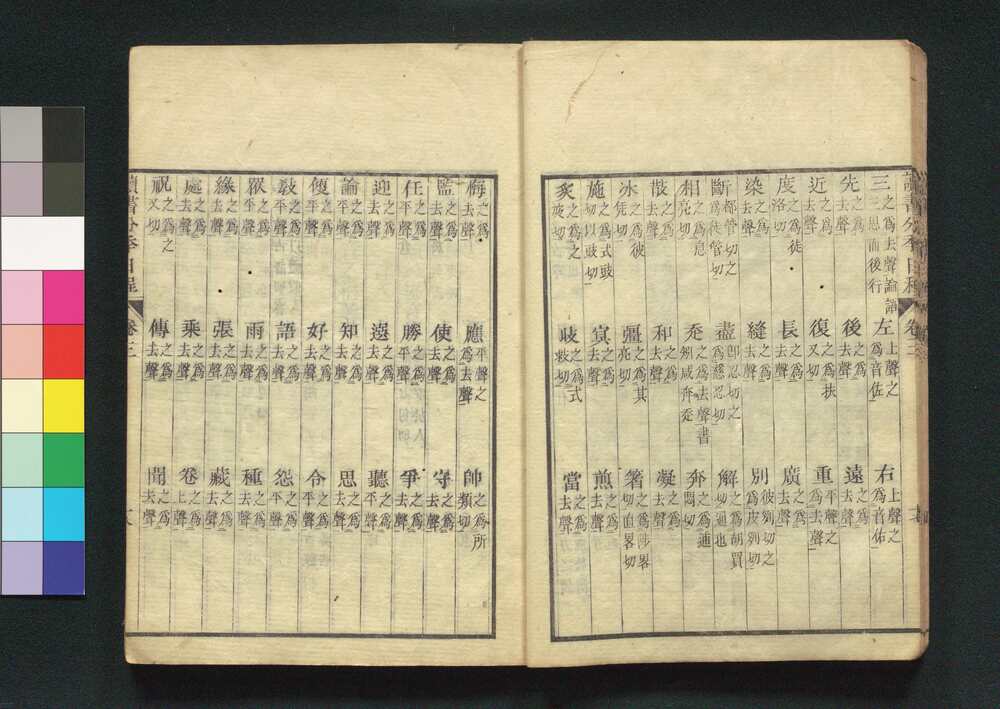 讀書分年日程 卷三
三 之爲去聲論語三思而後行 左 上聲之爲音佐 右 上聲之爲音佑
先 之爲去聲 後 之爲去聲 遠 之爲去聲
近 之爲去聲 復 之爲扶又切 重 平聲之爲去聲
度 之爲徒洛切 長 之爲去聲 廣 之爲去聲
染 之爲去聲 縫 之爲去聲 別 彼列切之爲皮列切
斷 都管切之爲徒管切 盡 即忍切之爲慈忍切 解 之爲胡買切通也
相 之爲息亮切 之爲去聲書 奔 之爲逋悶切
散 之爲去聲 和 之爲去聲 凝 之爲去聲
冰 之爲彼凭切 彊 之爲其亮切 箸 之爲陟畧切直畧切
施 之爲式豉切以豉切 之爲去聲 煎 之爲去聲
炙 之爲之夜切 之爲式救切 當 之爲去聲
之爲去聲 應 平聲之爲去聲 帥 之爲所類切
監 之爲去聲 使 之爲去聲 守 之爲去聲
任 之爲去聲 勝 之爲平聲 爭 之爲去聲
迎 之爲去聲 選 之爲去聲 聽 之爲平聲
論 之爲平聲 知 之爲去聲 思 之爲去聲
便 之爲平聲 好 之爲去聲 令 之爲平聲
教 之爲平聲 語 之爲去聲 怨 之爲去聲
之爲平聲 雨 之爲去聲 種 之爲去聲
緣 之爲去聲 張 之爲去聲 藏 之爲去聲
處 之爲去聲 乘 之爲去聲 卷 之爲上聲
祝 之爲之又切 傳 之爲去聲 聞 之爲去聲
讀書分年日程 卷三